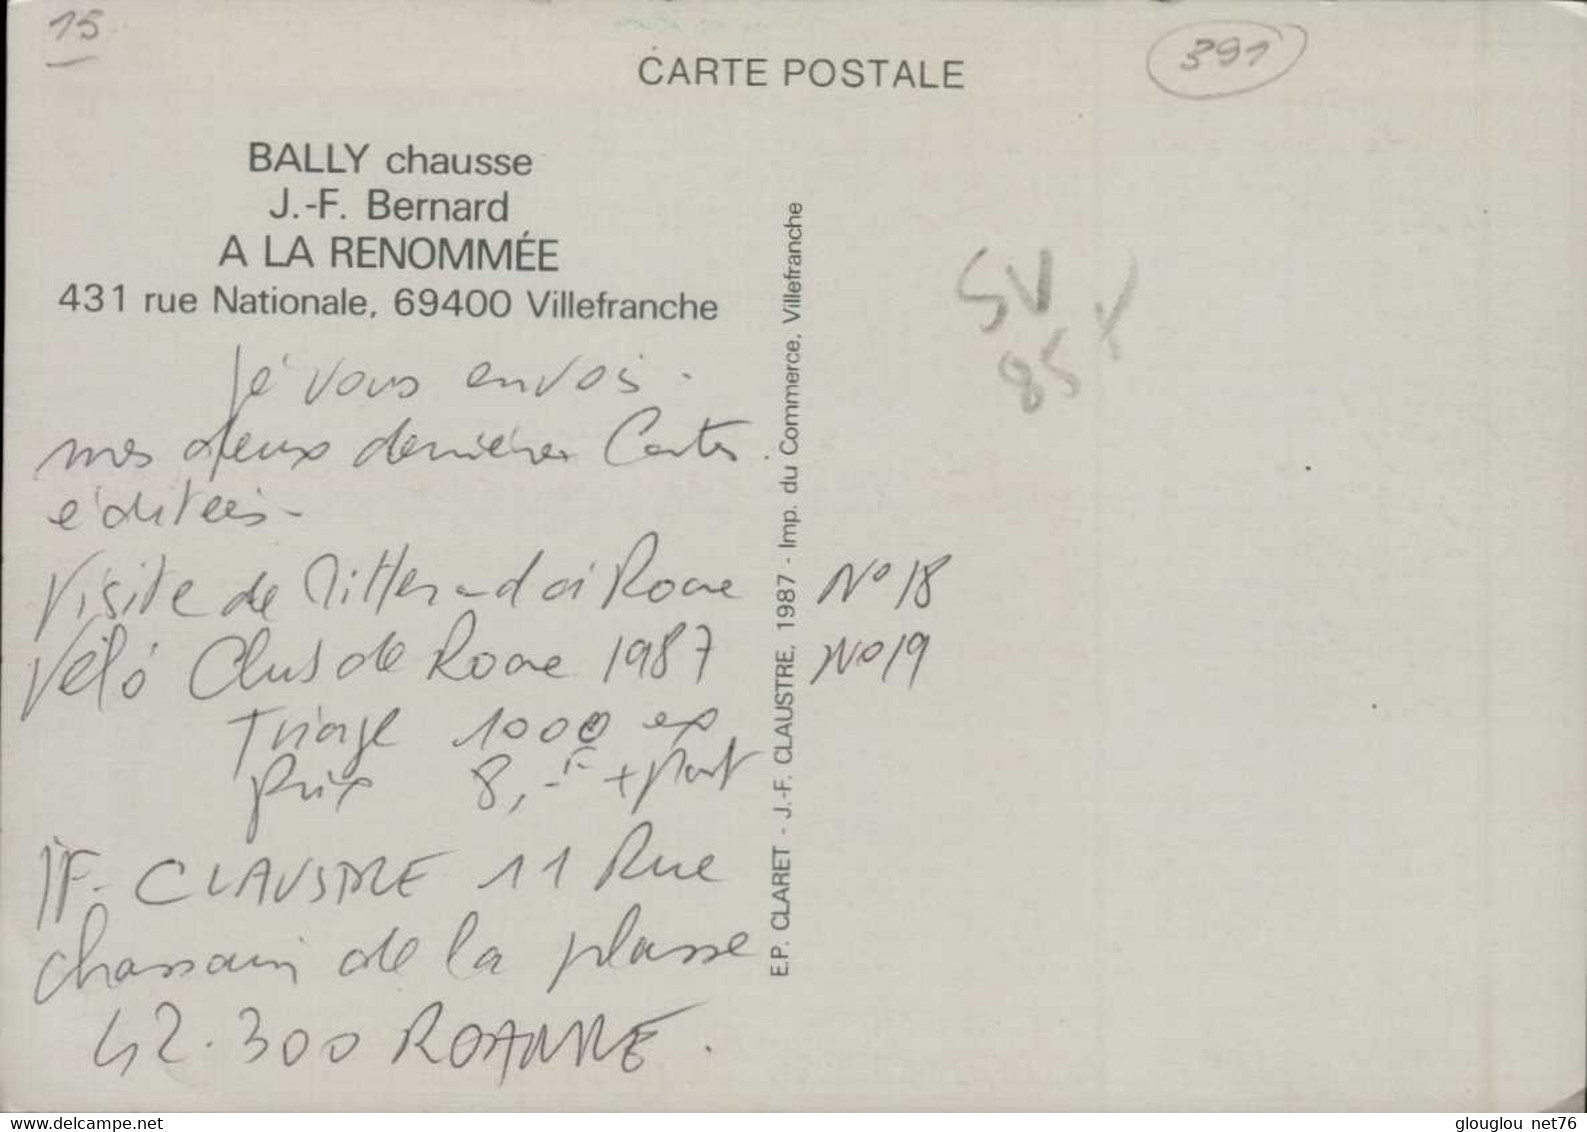 15
CARTE POSTALE
391
BALLY chausse
J.-F. Bernard
A LA RENOMMÉE
431 rue Nationale, 69400 Villefranche
Je vous envois.
mes deux dernières Cartes
éditées -
Visite de Mitterand à Roanne N° 18
Vélo Club de Roanne 1987 N° 19
Triage 1000 ex
prix 8,-F + port
JF. CLAUSTRE 11 Rue
chassain de la plasse
42.300 ROANNE.
E.P. CLARET - J.-F. CLAUSTRE, 1987 - Imp. du Commerce, Villefranche
SV
85 X
glouglou_net76